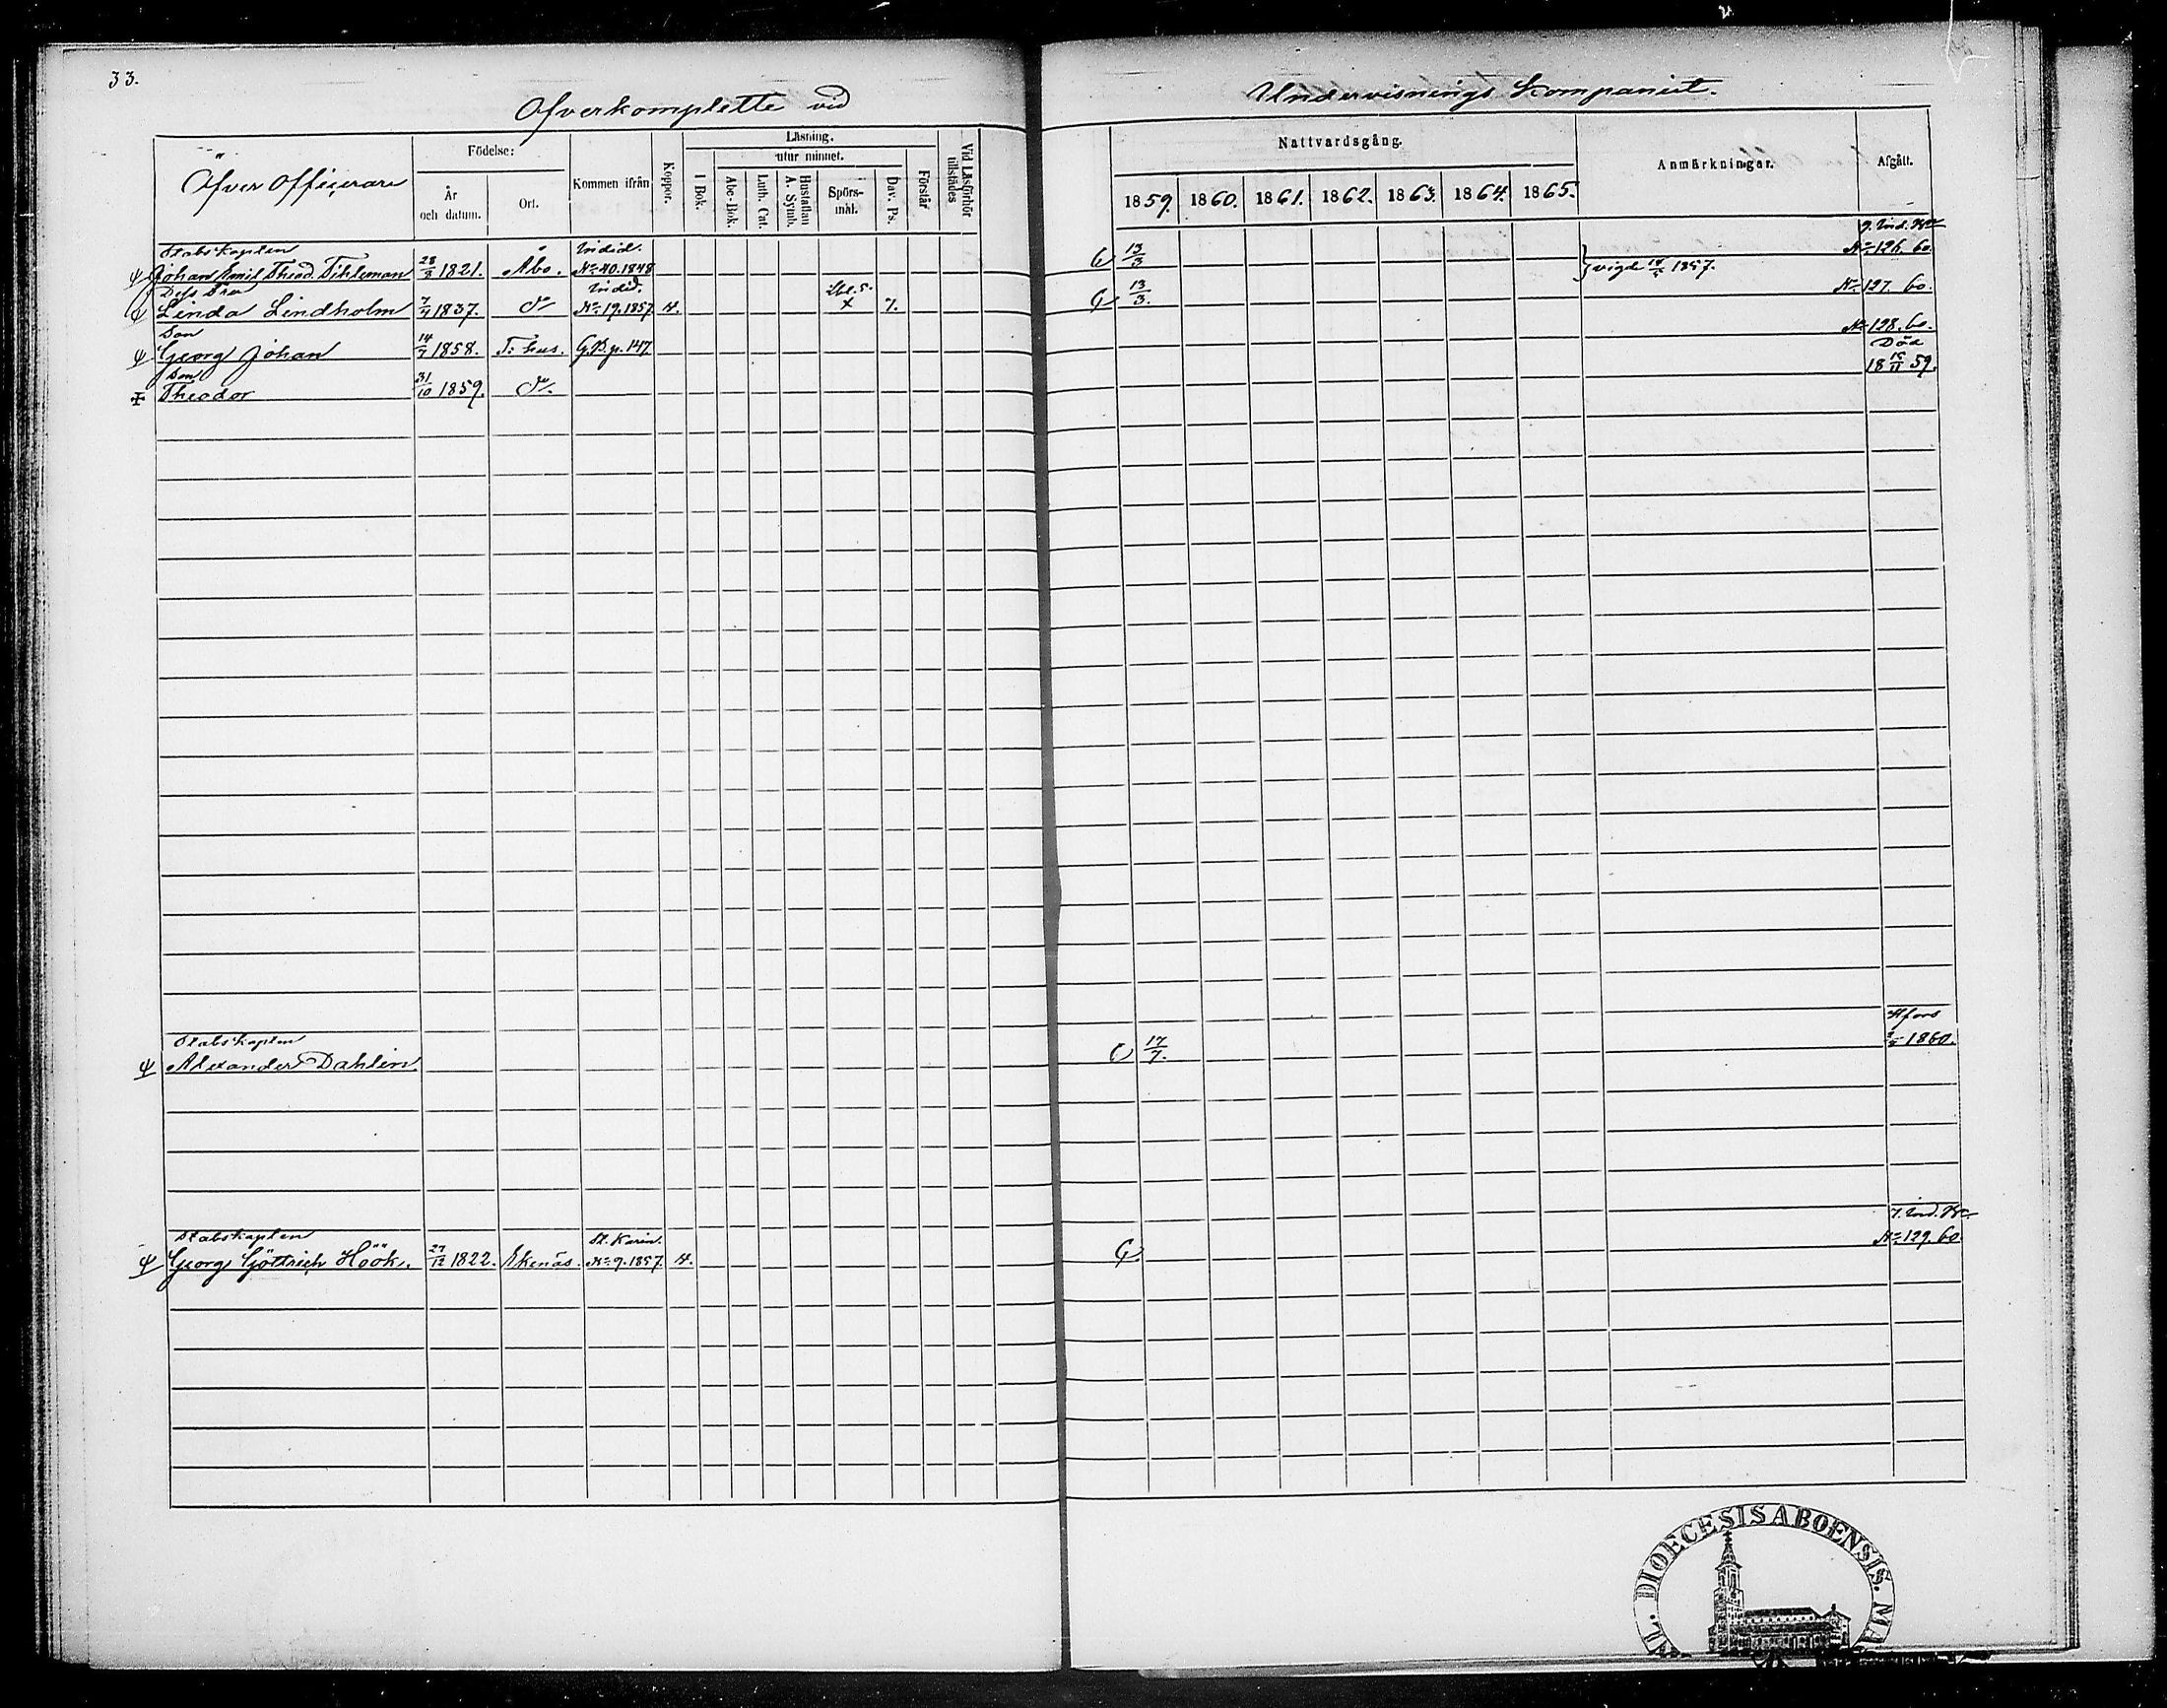 33.
Öfverkomplette vid Undervisnings Kompaniet.
Öfver Officerare
Födelse:
År och datum.
Ort.
Kommen ifrån
Koppor.
Läsning.
utur minnet.
I Bok.
Abc-Bok.
Luth. Cat.
Hustaflan A. Symb.
Spörs-mål.
Dav. Ps.
Förstår
Vid Läsförhör tillstädes
Nattvardsgång.
1859. 1860. 1861. 1862. 1863. 1864. 1865.
Anmärkningar.
Afgått.
Stabskapten
Johan Emil Theod. Tihleman 28/3 1821. Åbo. No 40.1848 13/3 vigde 1857. No 126. 60.
Dess Fru
Linda Lindholm 7/4 1837. No 19.1857. 13/3. No 127. 60.
Son
Georg Johan 14/7 1858. T:hus. G.B.p.147. No 128. 60.
Son
Theodor 31/10 1859. Död 18 /11 59.
Stabskapten
Alexander Dahlin 17/7. Hfors 1860.
Stabskapten
Georg Göttrich Höök. 27/12 1822. Ekenäs. St. Karin. No 9.1857. No 129. 60.
DIOECESIS ABOENSIS. MA